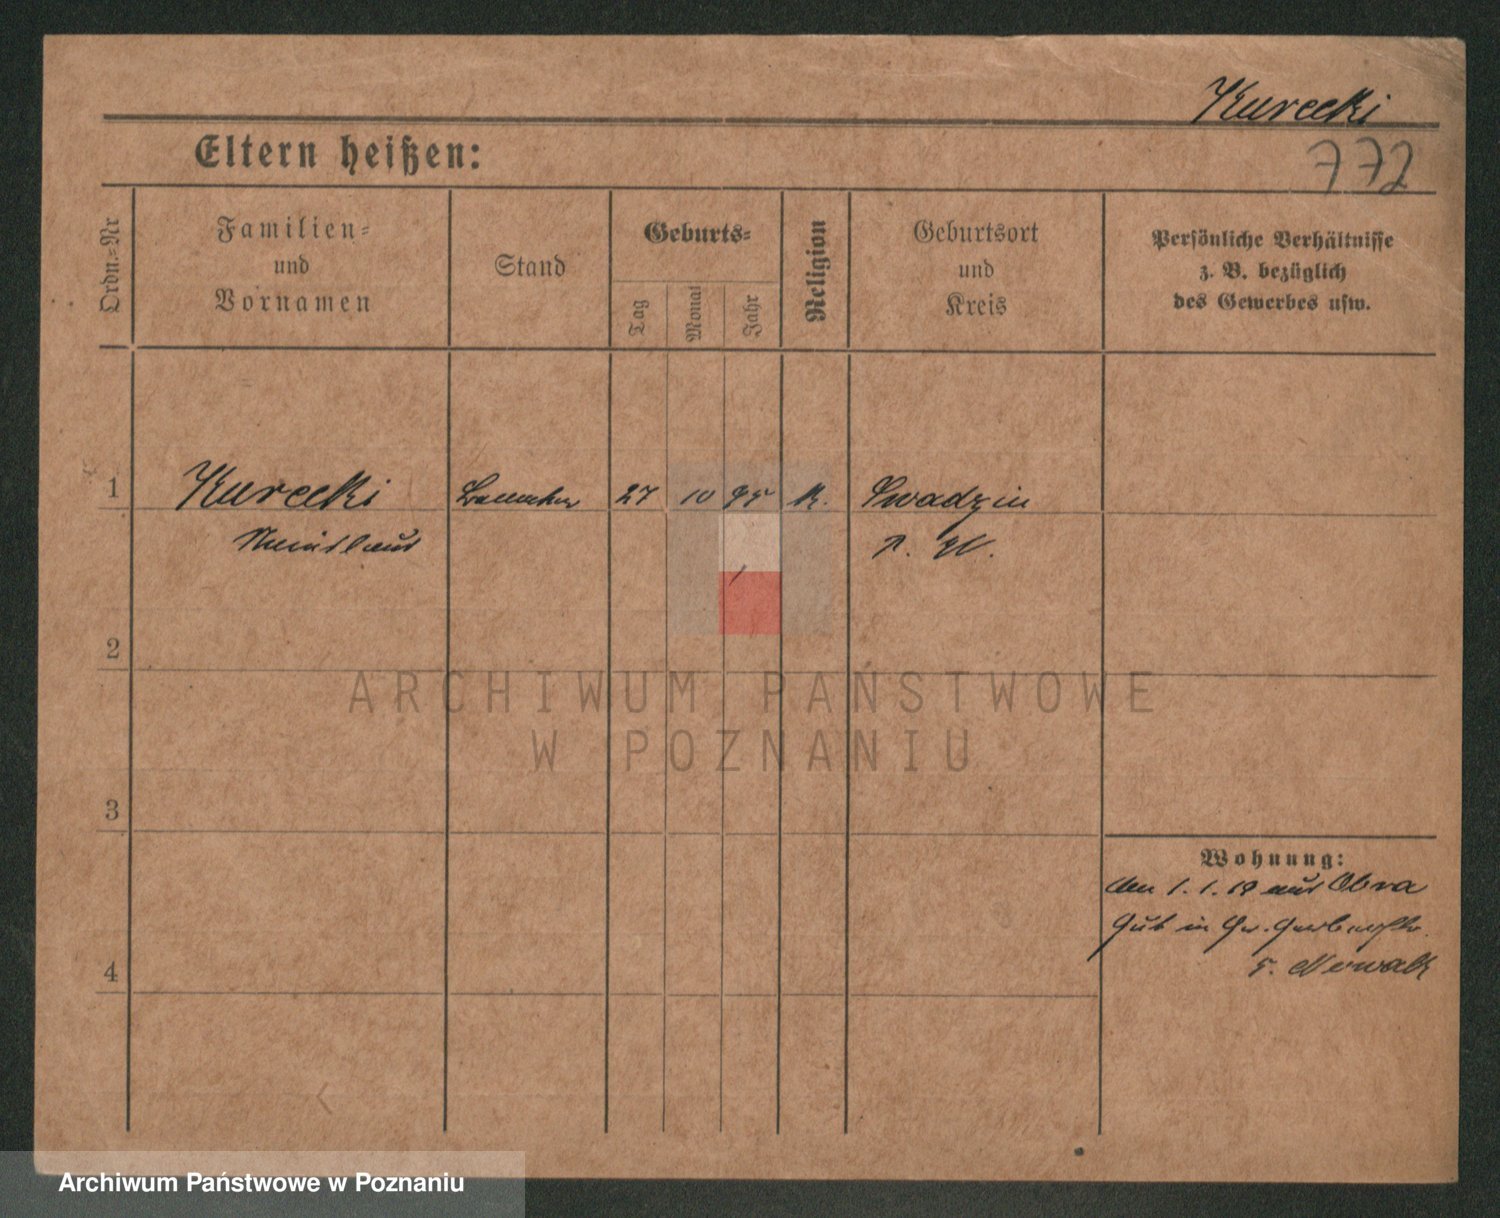 Kurecki
772
Eltern heißen:
Ordn.=Nr
Familien=
und
Vornamen
Stand
Geburts=
Tag
Monat
Jahr
Religion
Geburtsort
und
Kreis
Persönliche Verhältnisse
z. B. bezüglich
des Gewerbes usw.
1 Kurecki 27 10 95 K. Swadzin
P. W.
2
3
4
Wohnung:
den 1. 1. 19 aus Obra
Gut in Gr.
b. Nowak
ARCHIWUM PAŃSTWOWE
W POZNANIU
Archiwum Państwowe w Poznaniu